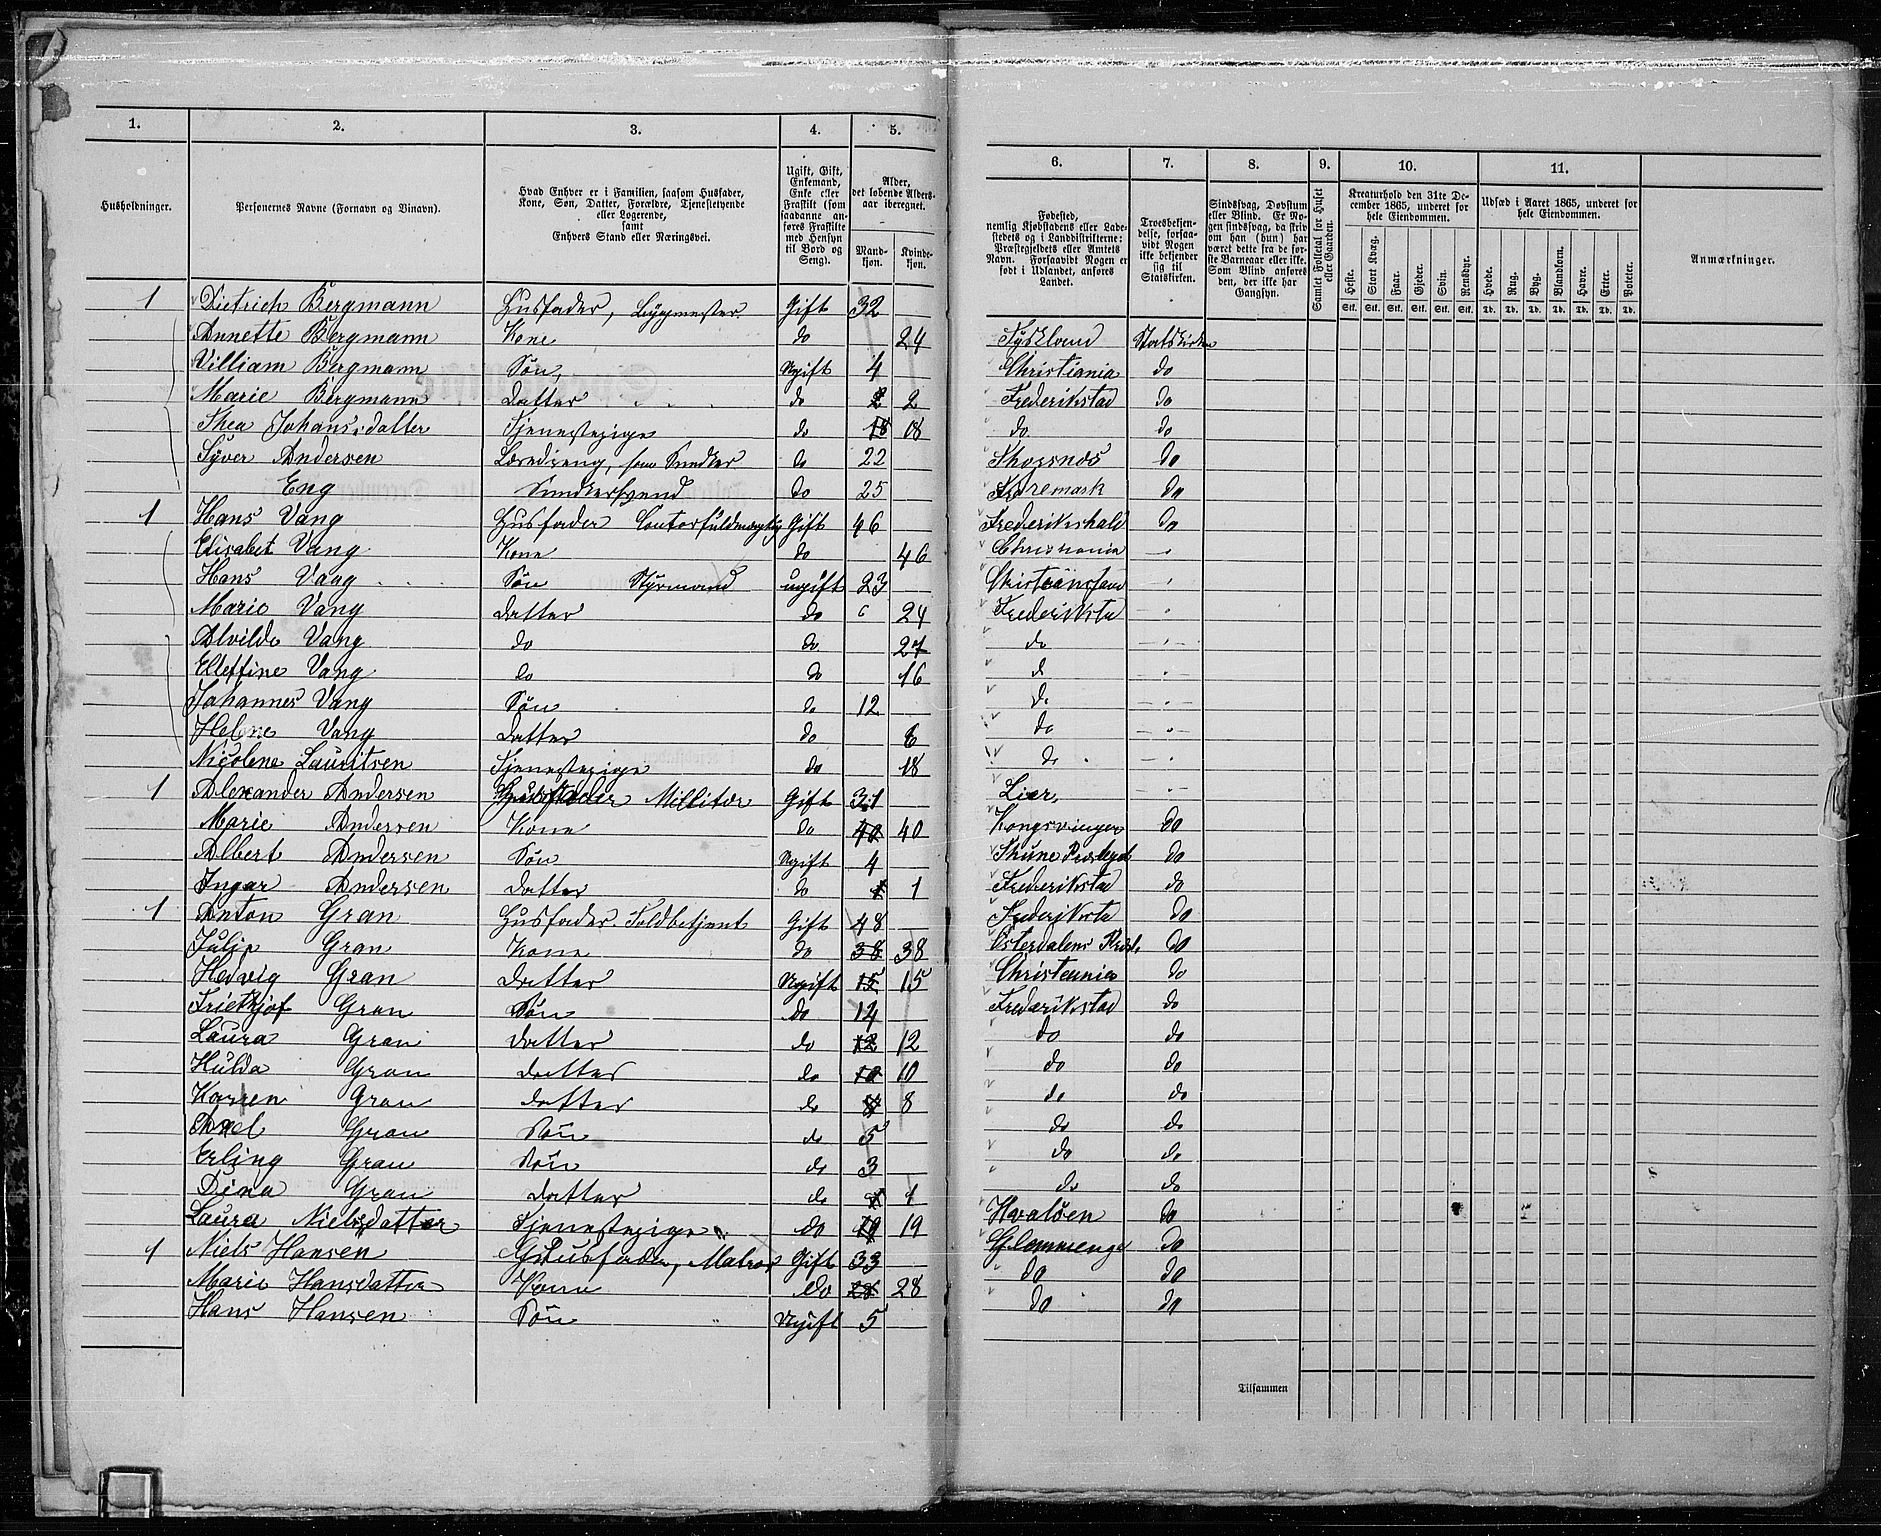 1.
2.
3.
4.
5.
Husholdninger.
Personernes Navne (Fornavn og Binavn).
Hvad Enhver er i Familien, saasom Husfader,
Kone, Søn, Datter, Forældre, Tjenestetyende
eller Logerende,
samt
Enhvers Stand eller Næringsvei.
Ugift, Gift,
Enkemand,
Enke eller
Fraskilt (som
saadanne an-
føres Fraskilte
med Hensyn
til Bord og
Seng).
Alder,
det løbende Alders-
aar iberegnet.
Mand-
kjøn.
Kvinde-
kjøn.
1 Dietrich Bergmann Husfader, Bygmester. Gift 32
Annette Bergmann Kone do 24
William Bergmann Søn, Ugift 4
Marie Bergmann Datter do 2 2
Thea Johansdatter Tjenestepige do 18 18
Syver Andersen Læredreng, som Snedker do 22
Eng Snedkersvend do 25
1 Hans Vang Husfader Contorfuldmægtig Gift 46
Elisabet Vang Kone do 46
Hans Vang Søn Styrmand ugift 23
Marie Vang Datter do 24
Alvilde Vang do do 27
Ellefine Vang do do 16
Johannes Vang Søn do 12
Helene Vang Datter do 6
Nicolene Lauritsen Tjenestepige do 18
1 Alexander Andersen Husfader Millitær Gift 31
Marie Andersen Kone do 40 40
Albert Andersen Søn Ugift 4
Ingar Andersen Datter do 1 1
1 Anton Gran Husfader. Toldbetjent Gift 48
Julie Gran Kone do 38 38
Hedvig Gran Datter Ugift 15 15
Friethjof Gran Søn do 14
Laura Gran Datter do 12 12
Hulda Gran Datter do 10 10
Karren Gran datter do 8 8
Axel Gran Søn do 5
Erling Gran Søn do 3
Dina Gran Datter do 1 1
Laura Nielsdatter Tjenestepige do 19 19
1 Niels Hansen Husfader, Matros Gift 33
Marie Hansdatter Kone do 28 28
Hans Hansen Søn Ugift 5
6.
7.
8.
9.
10.
11.
Fødested,
nemlig Kjøbstadens eller Lade-
stedets og i Landdistrikterne:
Præstegjeldets eller Amtets
Navn. Forsaavidt Nogen er
født i Udlandet, anføres
Landet.
Troesbekjen-
delse, forsaa-
vidt Nogen
ikke bekjender
sig til
Statskirken.
Sindssvag, Døvstum
eller Blind. Er No-
gen sindssvag, da skriv
om han (hun) har
været dette fra de før-
ste Barneaar eller ikke.
Som Blind anføres
den, der ikke har
Gangsyn.
Samlet Folketal for Huset
eller Gaarden.
Kreaturhold den 31te De-
cember 1865, underet for
hele Eiendommen.
Heste. Stort Kvæg. Faar. Gjeder. Svin. Rensdyr.
Stk. Stk. Stk. Stk. Stk. Stk.
Udsæd i Aaret 1865, underet for
hele Eiendommen.
Hvede. Rug. Byg. Blandkorn. Havre. Erter. Poteter.
Td. Td. Td. Td. Td. Td. Td.
Anmærkninger.
Tyskland Statskirken
Christiania do
Frederikstad do
do. do
Skogsnæs do
do
Frederikshald do
Christiania
Christiansand
Frederiksta
do
d
do
do
do
Lier.
Kongsvinger do
Skune Præstegel do
Frederikstad do
Frederiksta do
Østerdalens Præst. do
Christiania do
Frederikstad do
do do
do do
do do
do do
do do
do do
Hvaløen do
Glemmenge do
do do
do do
Tilsammen